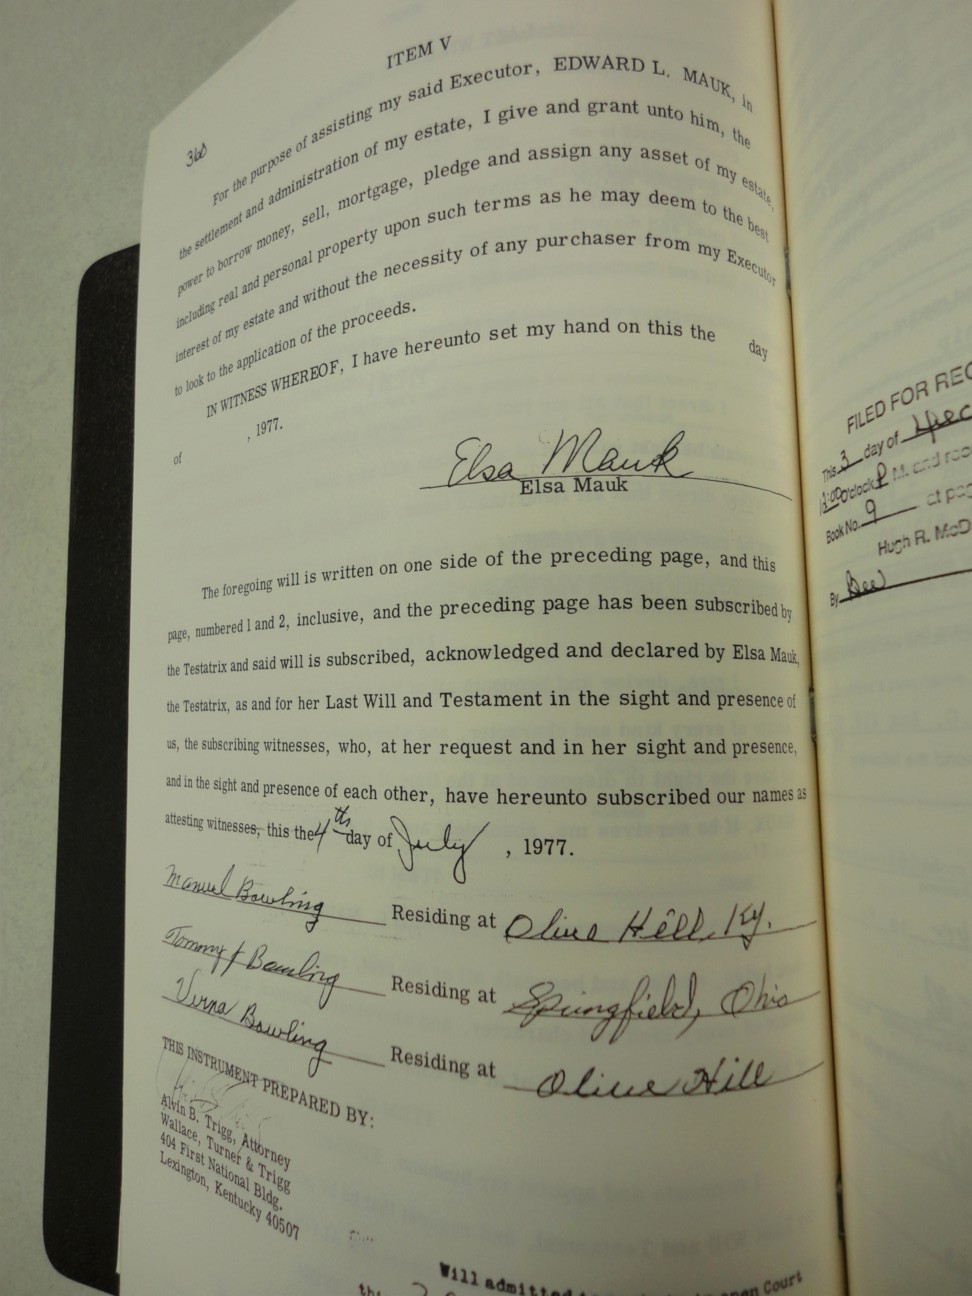 360
ITEM V
For the purpose of assisting my said Executor, EDWARD L. MAUK, in
the settlement and administration of my estate, I give and grant unto him, the
power to borrow money, sell, mortgage, pledge and assign any asset of my estate,
including real and personal property upon such terms as he may deem to the best
interest of my estate and without the necessity of any purchaser from my Executor
to look to the application of the proceeds.
IN WITNESS WHEREOF, I have hereunto set my hand on this the day
of , 1977.
Elsa Mauk
Elsa Mauk
The foregoing will is written on one side of the preceding page, and this
page, numbered 1 and 2, inclusive, and the preceding page has been subscribed by
the Testatrix and said will is subscribed, acknowledged and declared by Elsa Mauk,
the Testatrix, as and for her Last Will and Testament in the sight and presence of
us, the subscribing witnesses, who, at her request and in her sight and presence,
and in the sight and presence of each other, have hereunto subscribed our names as
attesting witnesses, this the 4th day of July , 1977.
Manuel Bowling Residing at Olive Hill, Ky.
Tommy J Bowling Residing at Springfield, Ohio
Verna Bowling Residing at Olive Hill
THIS INSTRUMENT PREPARED BY:
Alvin B. Trigg, Attorney
Wallace, Turner & Trigg
404 First National Bldg.
Lexington, Kentucky 40507
Will admitted open Court
FILED FOR REC
This 3 day of
O'clock P M. and reco
Book No. 9 at pag
Hugh R. McD
By